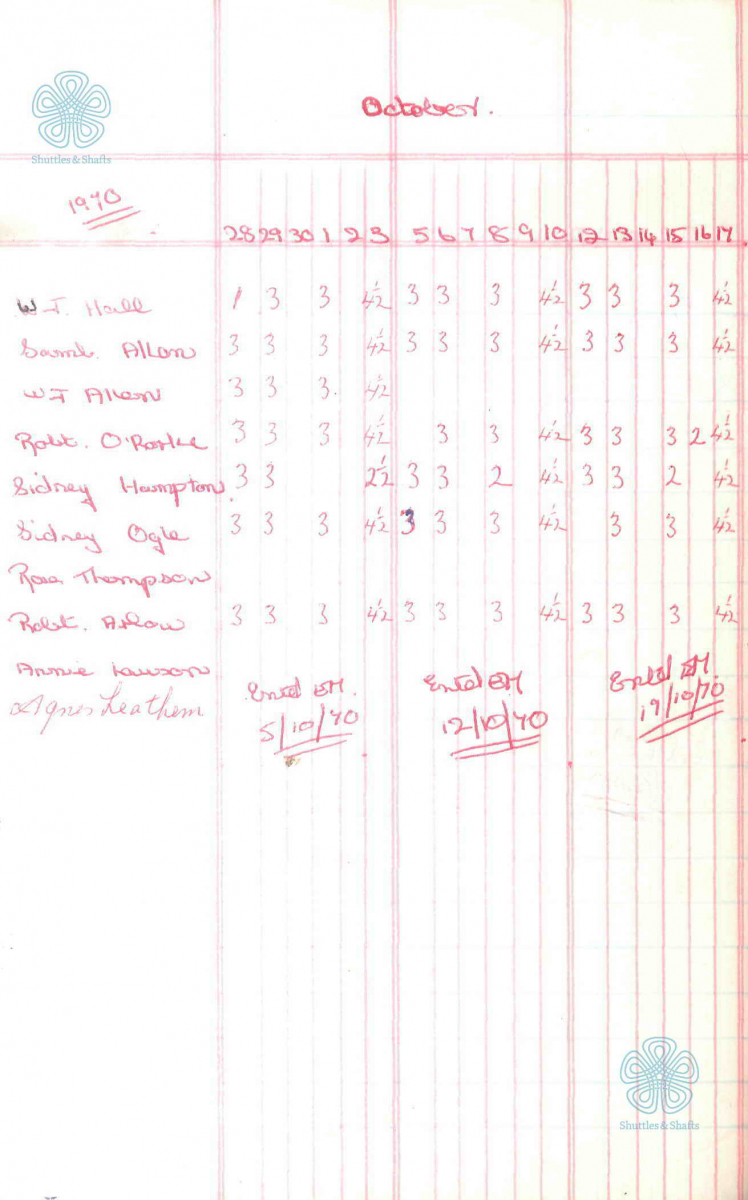 October.
Shuttles & Shafts
1970
28 29 30 1 2 3 5 6 7 8 9 10 12 13 14 15 16 17
W J. Hall 1 3 3 4½ 3 3 3 4½ 3 3 3 4½
Saml. Allen 3 3 3 4½ 3 3 3 4½ 3 3 3 4½
W J Allen 3 3 3. 4½
Robt. O'Rorke 3 3 3 4½ 3 3 4½ 3 3 3 2 4½
Sidney Hampton. 3 3 2½ 3 3 2 4½ 3 3 2 4½
Sidney Ogle 3 3 3 4½ 3 3 3 4½ 3 3 4½
Rosa Thompson
Robt. Arlow 3 3 3 4½ 3 3 3 4½ 3 3 3 4½
Annie Lawson
Agnes Leathem
Entd EH. Entd EH Entd EH.
5/10/70 12/10/70 19/10/70
Shuttles & Shafts